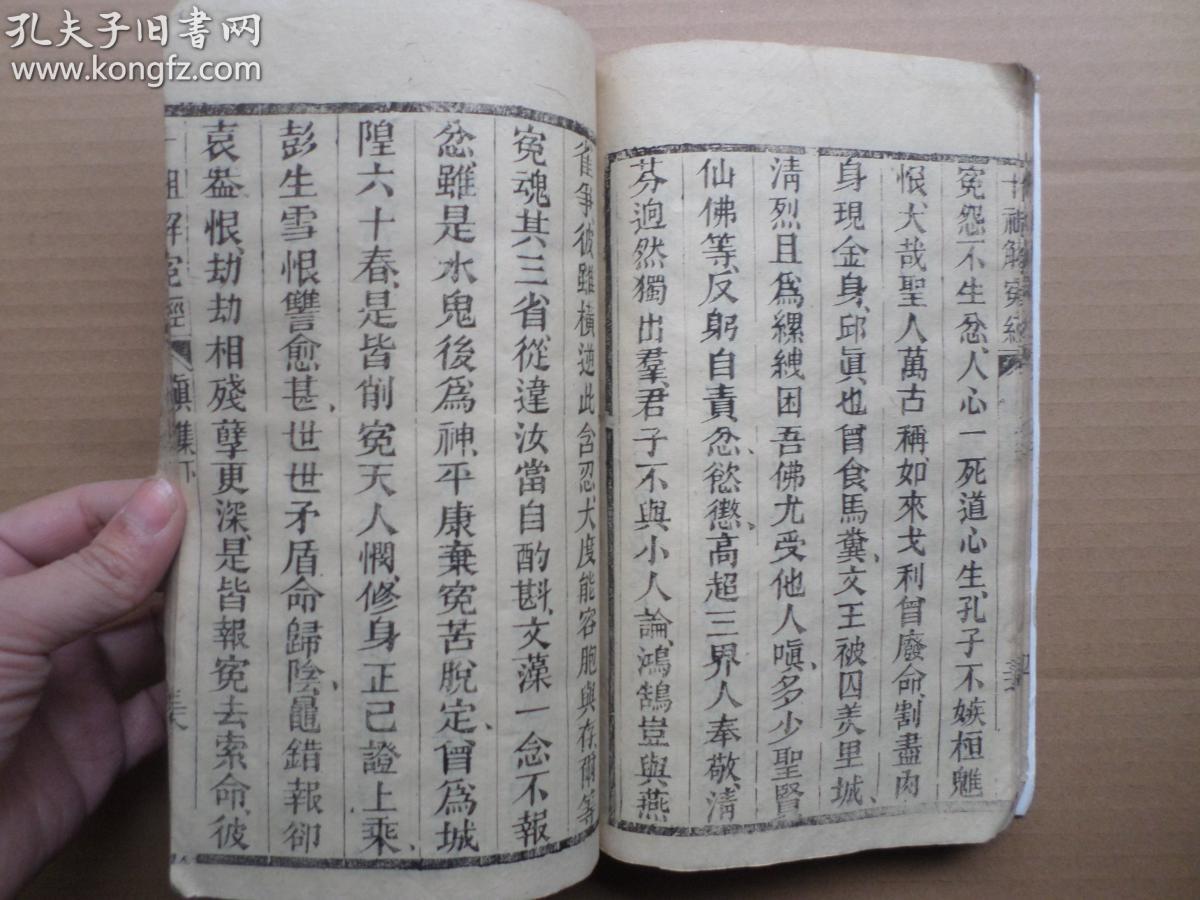 孔夫子旧书网
www.kongfz.com
冤怨不生忿、人心一死道心生、孔子不嫉桓魋
恨、大哉聖人萬古稱、如來戈利曾廢命、割盡肉
身現金身、邱眞也曾食馬糞、文王被囚羑里城、
淸烈且爲縲絏困、吾佛尤受他人嗔、多少聖賢
仙佛等、反躬自責忿慾懲、高超三界人奉敬、淸
芬逈然獨出羣、君子不與小人論、鴻鵠豈與燕
雀爭、彼雖橫逆此含忍、大度能容胞與存、爾等
冤魂其三省、從違汝當自酌斟、文藻一念不報
忿、雖是水鬼後爲神、平康棄冤苦脫定、曾爲城
隍六十春、是皆削冤天人憫、修身正己證上乘、
彭生雪恨讐愈甚、世世矛盾命歸陰、鼂錯報卻
袁盎恨、劫劫相殘孽更深、是皆報冤去索命、彼
祖解冤經
集下